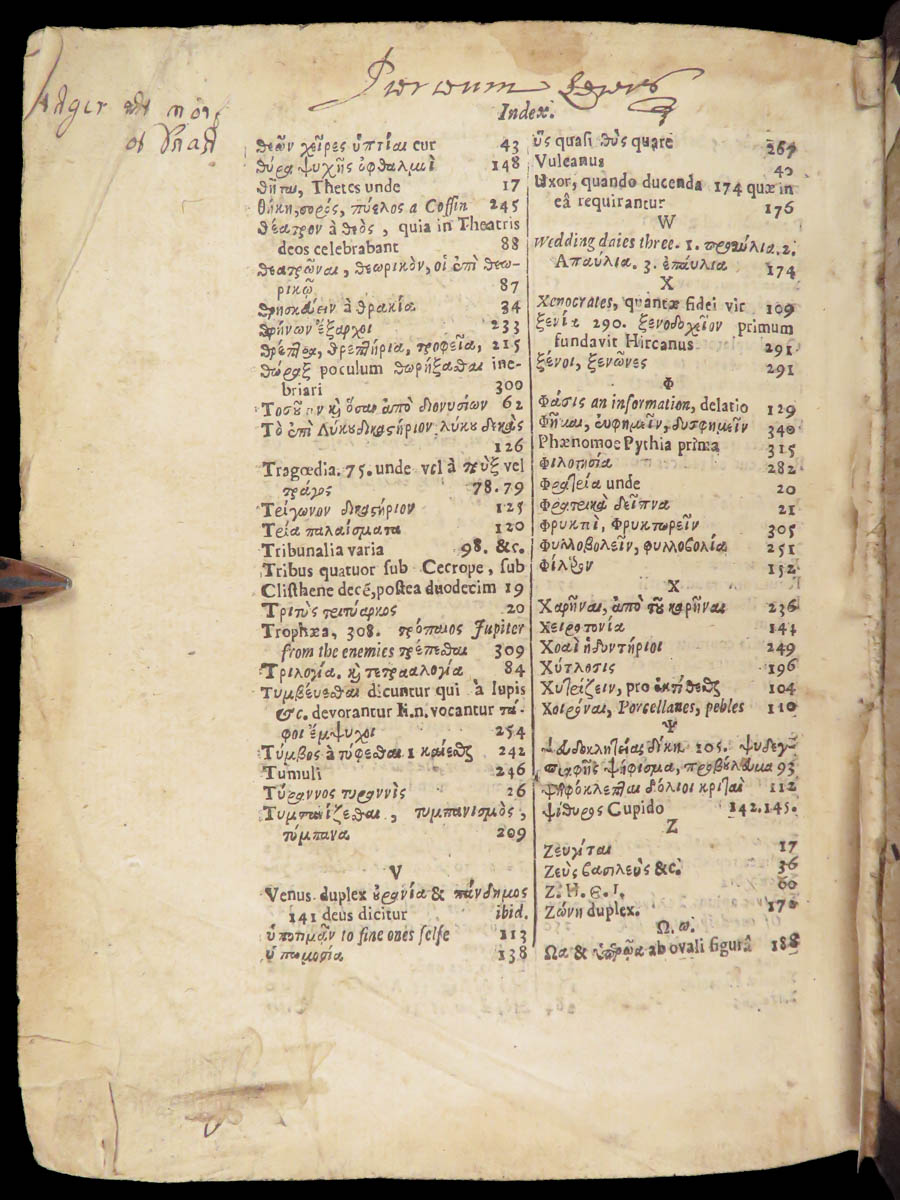 Index.
θεῶν χεῖρες ὑπτίαι cur 43
θύρα ψυχῆς ὀφθαλμοὶ 148
θῆται, Thetes unde 17
θήκη, σορός, πύελος a Coffin 245
θέατρον à θεὸς, quia in Theatris
deos celebrabant 88
θεατρῶναι, θεωρικὸν, οἱ ἐπὶ θεω-
ρικῷ 87
θρησκεύειν à θρακία 34
θρήνων ἔξαρχοι 233
θρέπτρα, θρεπτήρια, τροφεῖα, 215
θώραξ poculum θωρήξασθαι ine-
briari 300
ὅσαι ἀπὸ διονυσίων 62
Τὸ ἐπὶ Λύκου δικαστήριον, λύκου δεκὰς
126
Tragœdia. 75. unde vel à vel
τράγος 78.79
Τρίγωνον δικαστήριον 125
Τρία παλαίσματα 120
Tribunalia varia 98. &c.
Tribus quatuor sub Cecrope, sub
Clisthene decē, postea duodecim 19
Τριτὺς τριτύαρχος 20
Trophæa, 308. τρόπαιος Jupiter
from the enemies τρέπεσθαι 309
Τριλογία. κ τετρααλογία 84
Τυμβεύεσθαι dicuntur qui à lupis
&c. devorantur h.n. vocantur τά-
φοι ἔμψυχοι 254
Τύμβος à τύφεσθαι 1 καίεσθαι 242
Tumuli 246
Τύραννος τυραννὶς 26
Τυμπανίζεσθαι, τυμπανισμὸς,
τύμπανα 209
V
Venus duplex οὐρανία & πάνδημος
141 deus dicitur ibid.
ὑποτιμᾶν to fine ones selfe 113
ὑπωμοσία 138
ὗς quasi θὺς quare 267
Vulcanus 40
Uxor, quando ducenda 174 quæ in
eâ requirantur 176
W
Wedding daies three. 1. προαύλια. 2.
Απαύλια. 3. ἐπαύλια 174
X
Xenocrates, quantæ fidei vir 109
ξενία 290. ξενοδοχεῖον primum
fundavit Hircanus 291
ξένοι, ξενῶνες 291
Φ
Φάσις an information, delatio 129
Φῆμαι, εὐφημεῖν, δυσφημεῖν 340
Phænomoe Pythia prima 315
Φιλοτησία 282
Φρατρία unde 20
Φρατρικὰ δεῖπνα 21
Φρυκτοὶ, Φρυκτωρεῖν 305
Φυλλοβολεῖν, φυλλοβολία 251
Φίλτρον 152
X
236
Χειροτονία 144
Χοαὶ ἡδυντήριοι 249
Χύτλοσις 196
Χυτρίζειν, pro ἐκτίθεσθαι 104
Χοιρίναι, Porcellanes, pebles 110
Ψ
Ψευδοκλητείας δίκη. 105. ψυδεγ-
γραφῆς ψήφισμα, προβούλευμα 93
ψηφόκλεπται δόλιοι κριταὶ 112
ψίθυρος Cupido 142.145.
Z
Ζευγῖται 17
Ζεὺς βασιλεὺς &c. 36
Ζ. Η. Θ. Ι. 60
Ζώνη duplex. 172
Ω. ω.
Ωα & ὑπερῶα ab ovali figurâ 188